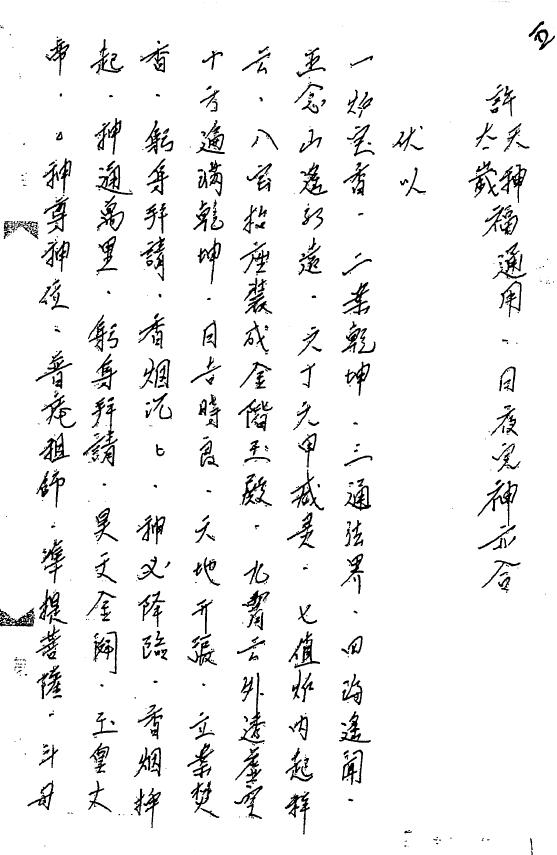 許天神
太歲福通用．日夜完神亦合
伏以
一炉宝香．二業乾坤．三通法界．四海遙聞．
五念山遙路遠．六丁六甲威灵．七值炉内起祥
云．八宝抬座裝成金階玉殿．九霄云外透虛空
十方遍滿乾坤．日吉時良．天地开張．立案焚
香．躬身拜請．香烟沉沉．神必降臨．香烟拜
起．神通萬里．躬身拜請．昊天金闕．玉皇大
帝．神尊神位．普庵祖師．準提菩薩．斗母